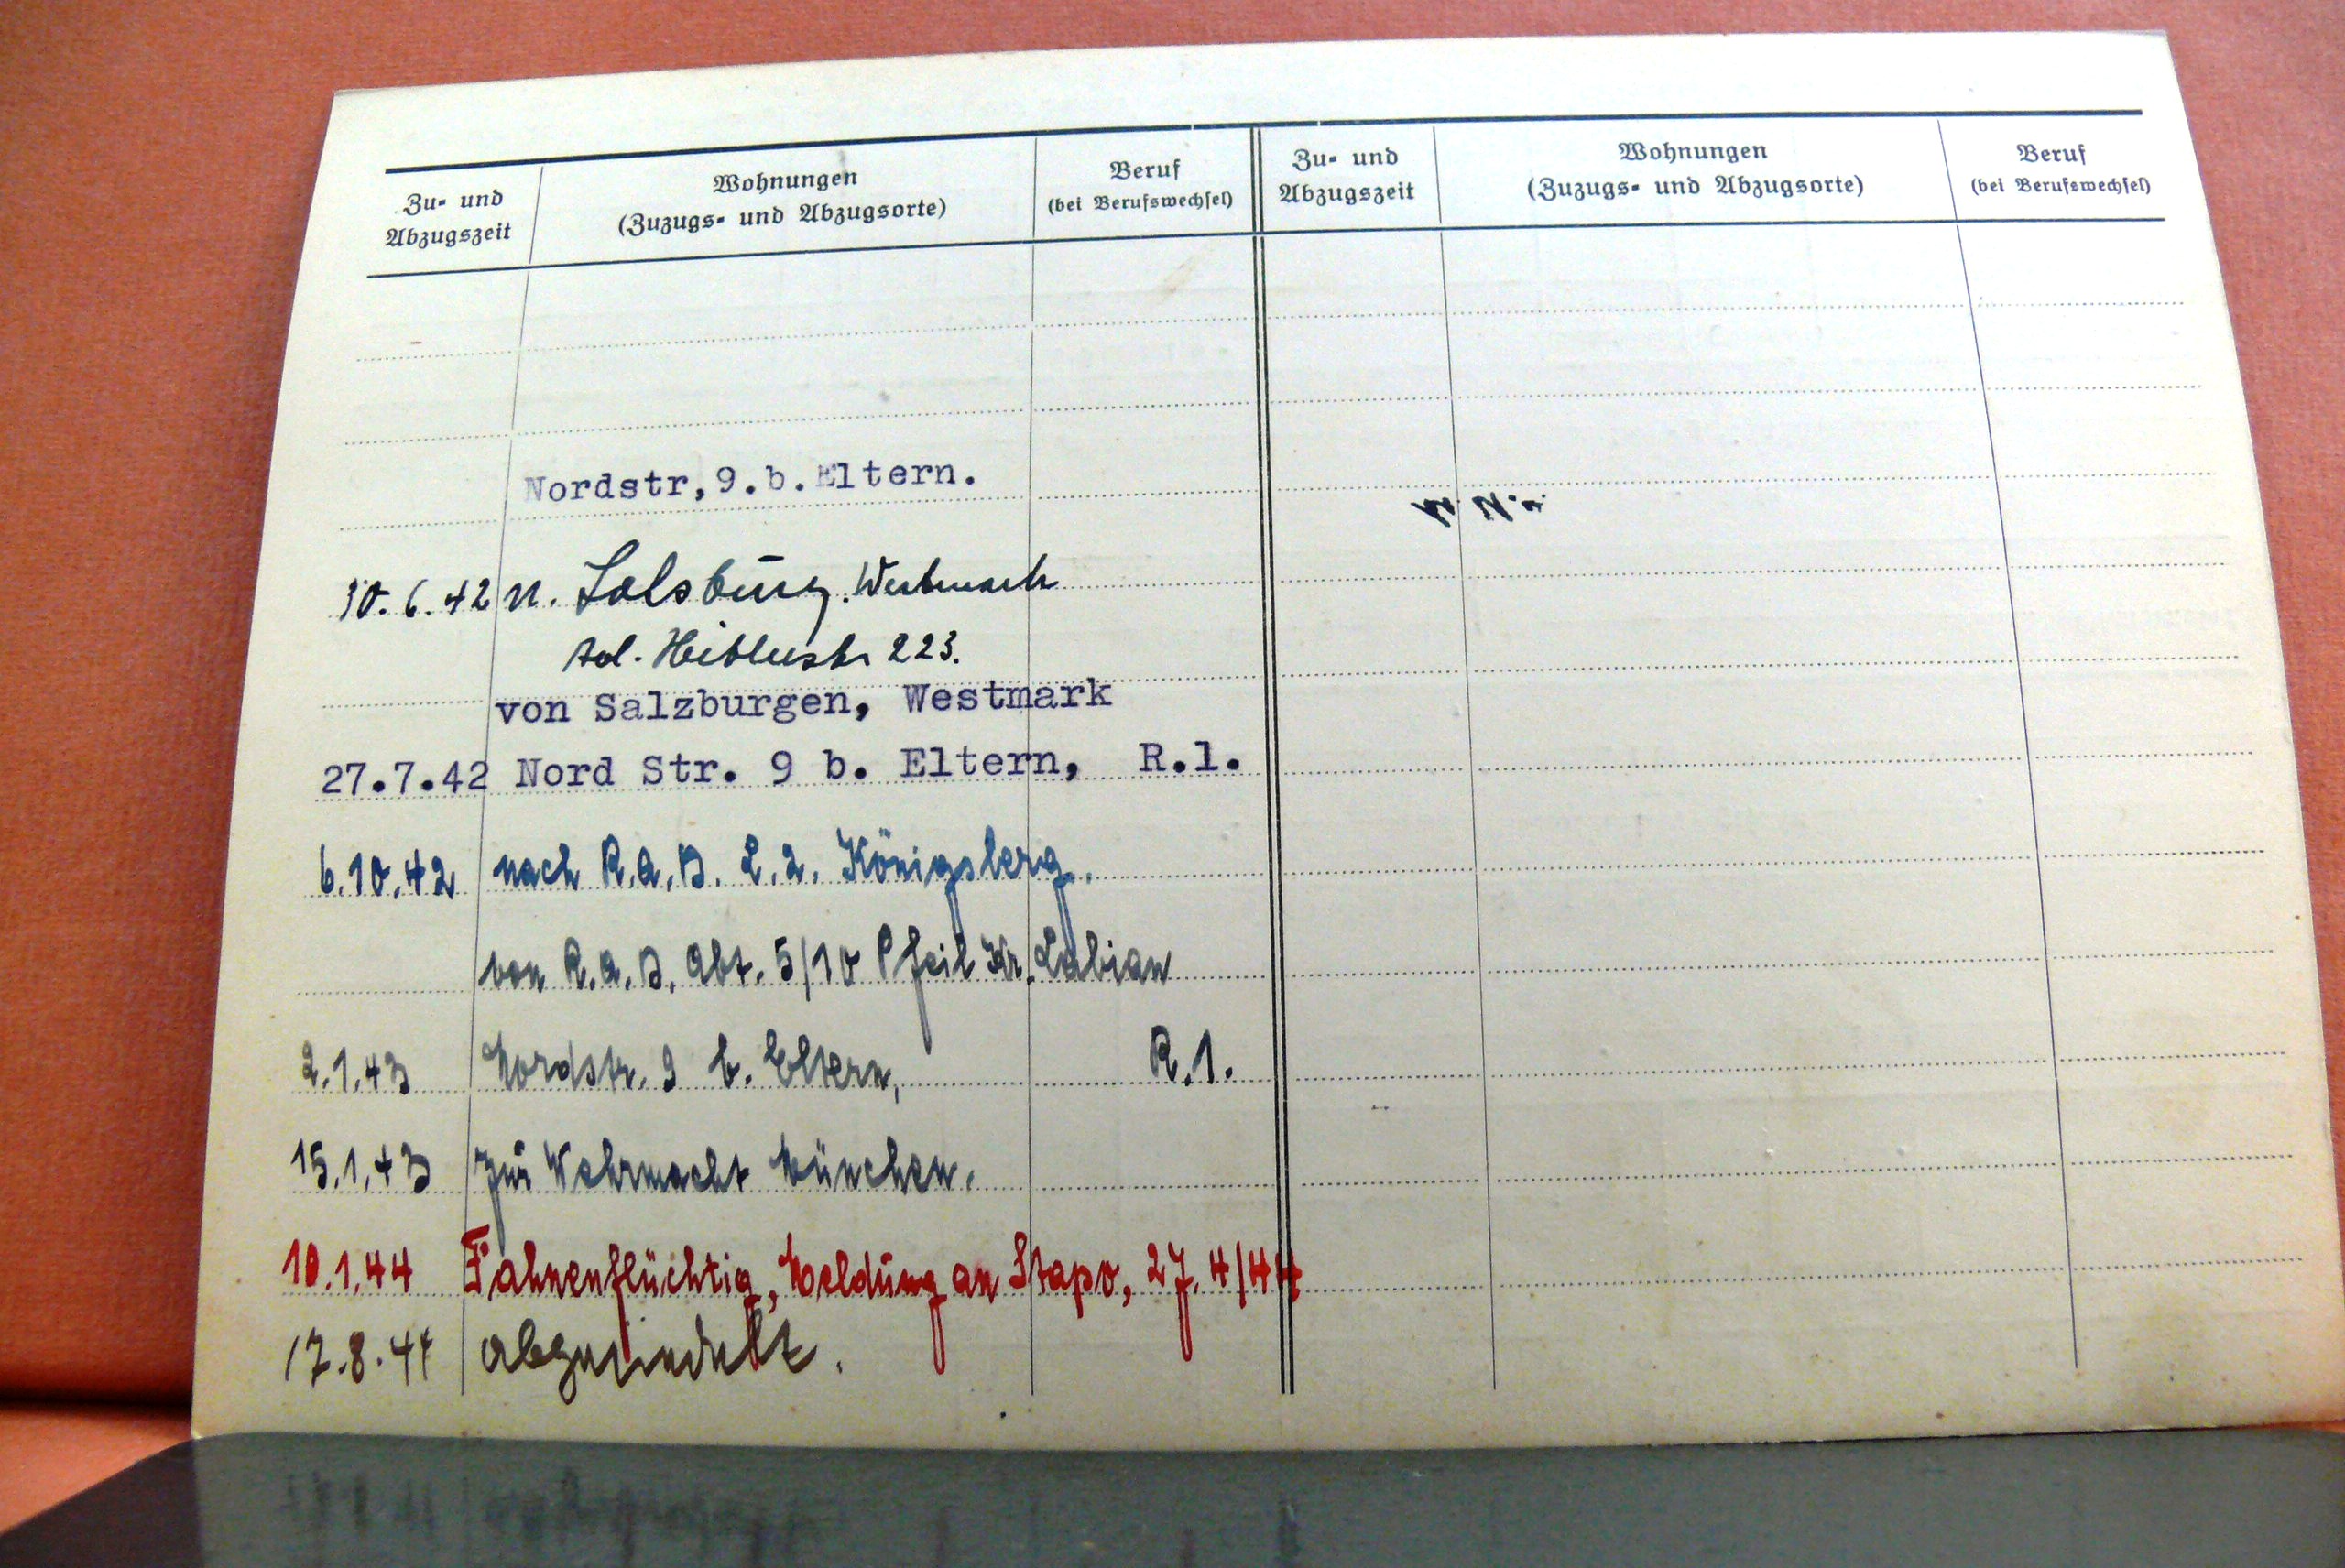 Zu- und
Abzugszeit
Wohnungen
(Zuzugs- und Abzugsorte)
Beruf
(bei Berufswechsel)
Zu- und
Abzugszeit
Wohnungen
(Zuzugs- und Abzugsorte)
Beruf
(bei Berufswechsel)
Nordstr,9.b.Eltern.
10.6.42 n. Salsburg. Westmark
223.
von Salzburgen, Westmark
27.7.42 Nord Str. 9 b. Eltern, R.1.
6.10.42 nach R.A.D. L.2. Königsberg.
von R.A.D. Abt. 5/10 Pfeil Kr. Labiau
2.1.43 Nordstr. 9 b. Eltern, R.1.
15.1.43 zur Wehrmacht München.
10.1.44 Fahnenflüchtig, Meldung an Stapo, 27.4/44
17.8.44 abgesiedelt.